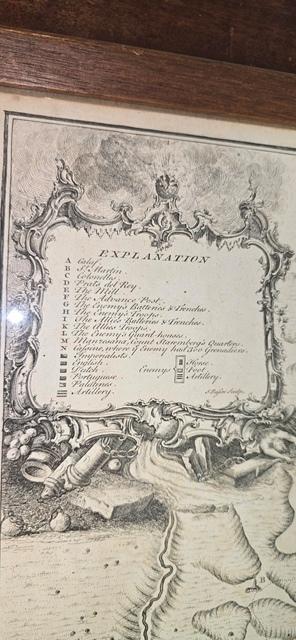 EXPLANATION
A Calaf.
B St. Martin.
C Colonella.
D Prats del Rey.
E The Hill.
F The Advance Post.
G The Enemy's Batteries & Trenches.
H The Enemy's Troops.
I The Allies Batteries & Trenches.
K The Allies Troops.
L The Enemy's Guard-houses.
M Manresana, Count Staremberg's Quarters.
N Cassine, where ye. Enemy had 300 Grenadiers.
Imperialists.
English.
Dutch.
Portuguese.
Palatines.
Artillery.
Enemys
Horse.
Foot.
Artillery.
B